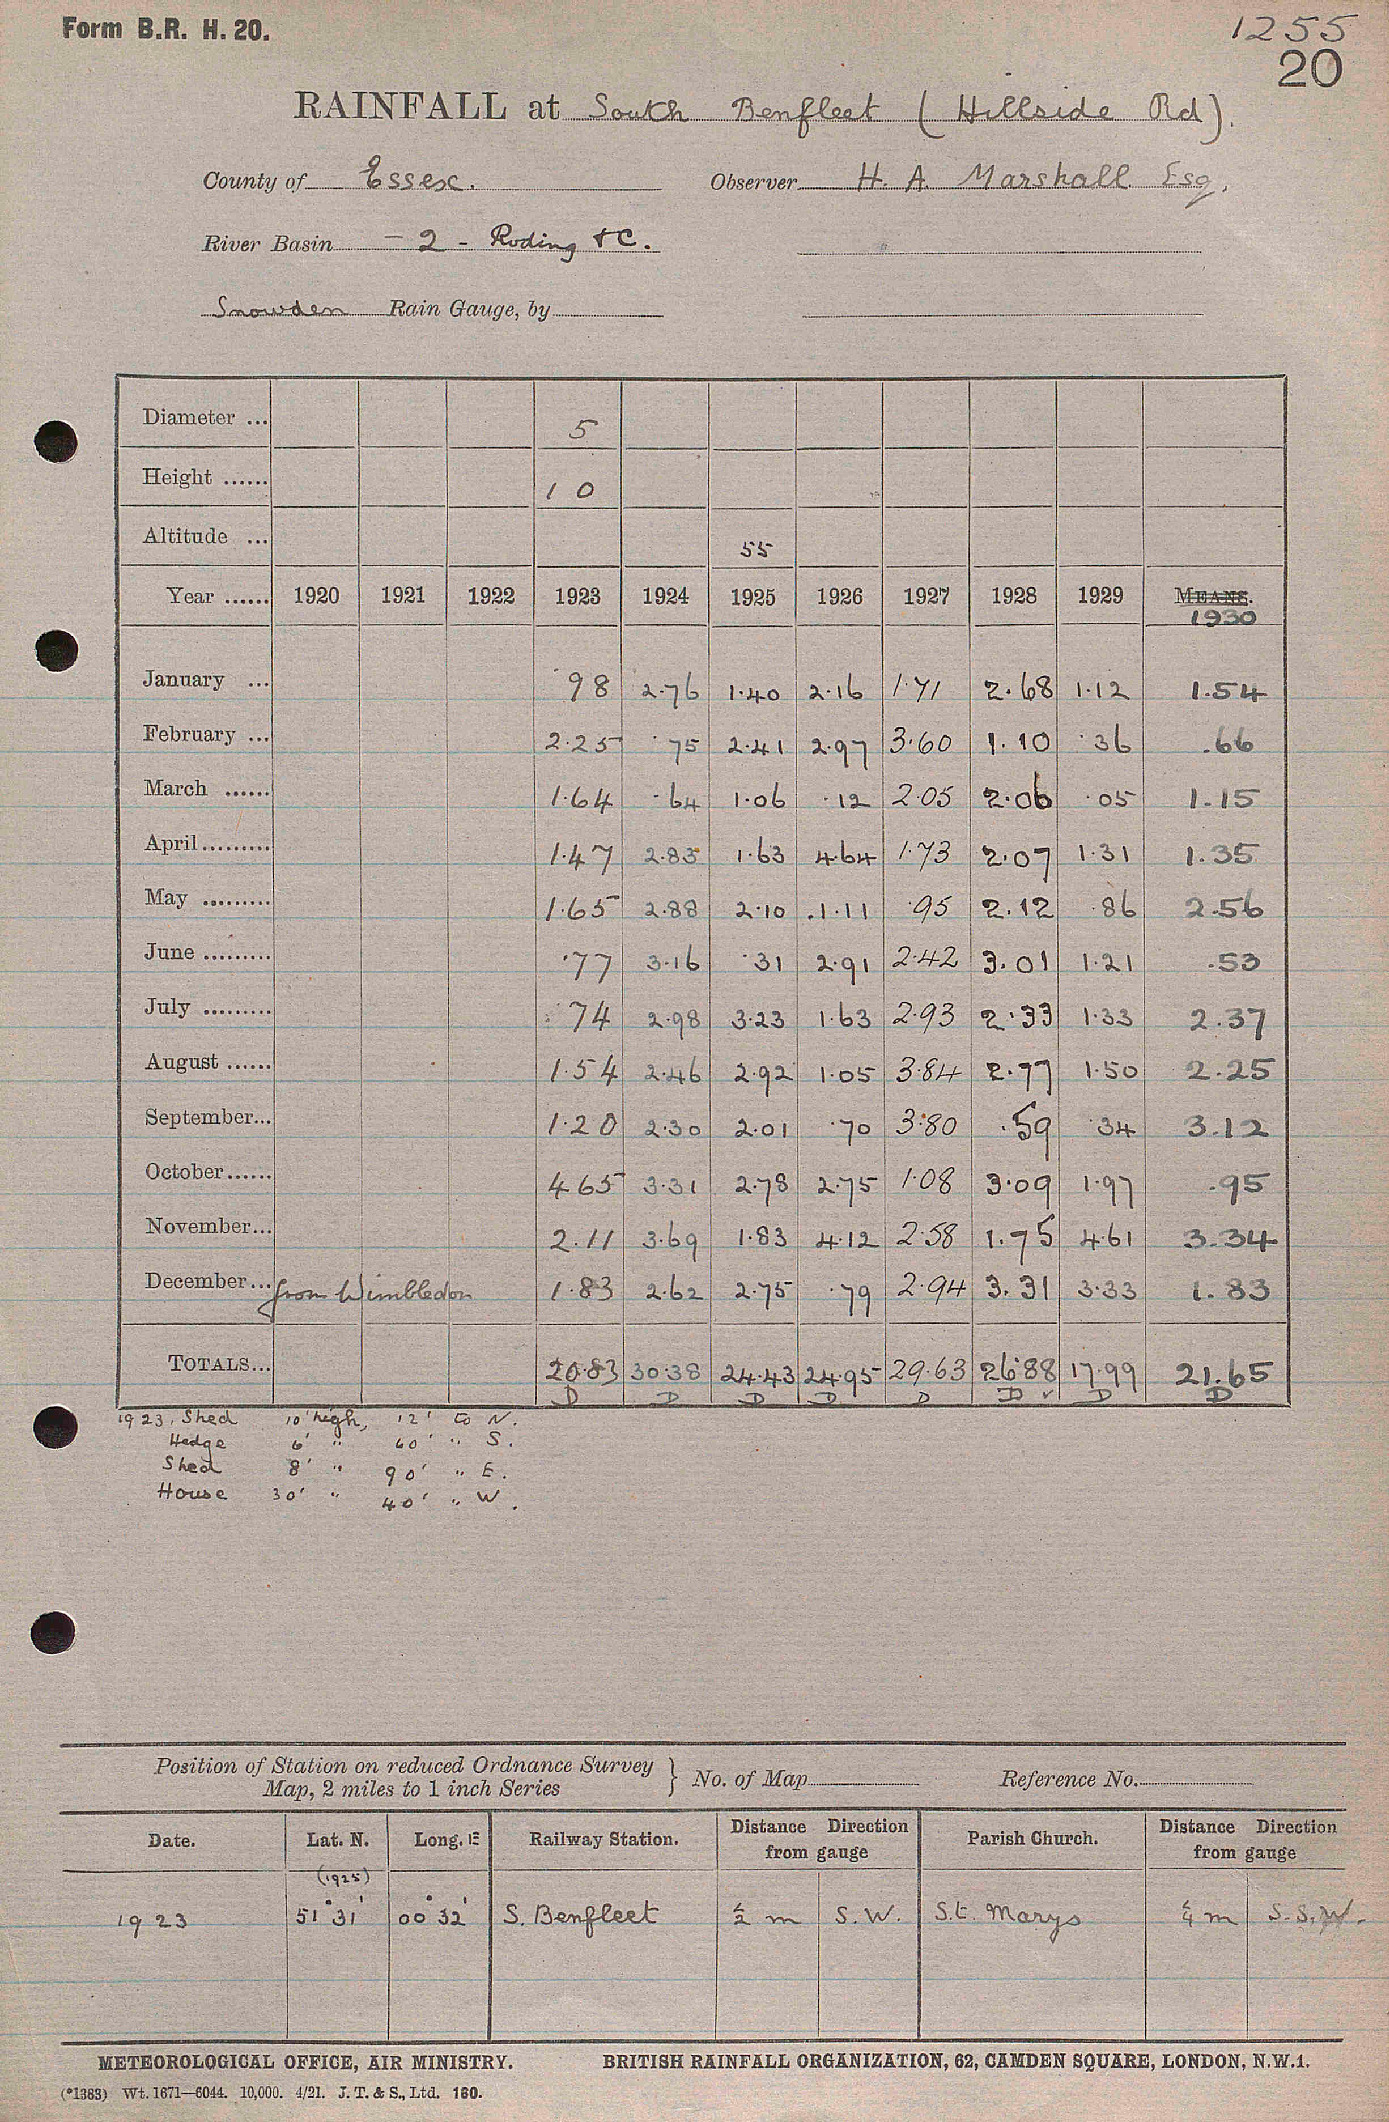 Form B.R. H. 20.
1255
20
RAINFALL at South Benfleet (Hillside Rd).
County of Essex. Observer H. A. Marshall Esq.
River Basin - 2 - Roding &C.
Snowden Rain Gauge, by
Diameter ... 5
Height ...... 1 0
Altitude ... 55
Year ...... 1920 1921 1922 1923 1924 1925 1926 1927 1928 1929 MEANS.
1930
January ... ·98 2·76 1·40 2·16 1·71 2·68 1·12 1.54
February ... 2·25 ·75 2·41 2·97 3·60 1·10 ·36 .66
March ...... 1·64 ·64 1·06 ·12 2·05 2·06 ·05 1.15
April ......... 1·47 2·83 1·63 4·64 1·73 2·07 1·31 1.35
May ......... 1·65 2·88 2·10 1·11 ·95 2·12 ·86 2.56
June ......... ·77 3·16 ·31 2·91 2·42 3·01 1·21 .53
July ......... ·74 2·98 3·23 1·63 2·93 2·33 1·33 2.37
August ...... 1·54 2·46 2·92 1·05 3·84 2·77 1·50 2.25
September... 1·20 2·30 2·01 ·70 3·80 ·59 ·34 3.12
October...... 4 65 3·31 2·78 2·75 1·08 3·09 1·97 .95
November... 2.11 3·69 1·83 4·12 2·58 1·75 4·61 3.34
December... from Wimbledon 1·83 2·62 2·75 ·79 2·94 3.31 3·33 1.83
TOTALS... 20·83 30·38 24·43 24·95 29·63 26·88 17·99 21.65
D D D D D D ✓ D D
1923, Shed 10' high, 12' to N.
Hedge 6' " 60' " S.
Shed 8' " 90' " E.
House 30' " 40' " W.
Position of Station on reduced Ordnance Survey Map, 2 miles to 1 inch Series } No. of Map Reference No.
Date. Lat. N. Long. E Railway Station. Distance Direction from gauge Parish Church. Distance Direction from gauge
(1925)
1923 51° 31' 00° 32' S. Benfleet ½ m S.W. St. Marys ¼ m S.S.W.
METEOROLOGICAL OFFICE, AIR MINISTRY. BRITISH RAINFALL ORGANIZATION, 62, CAMDEN SQUARE, LONDON, N.W.1.
(*1383) Wt. 1671—6044. 10,000. 4/21. J. T. & S., Ltd. 160.